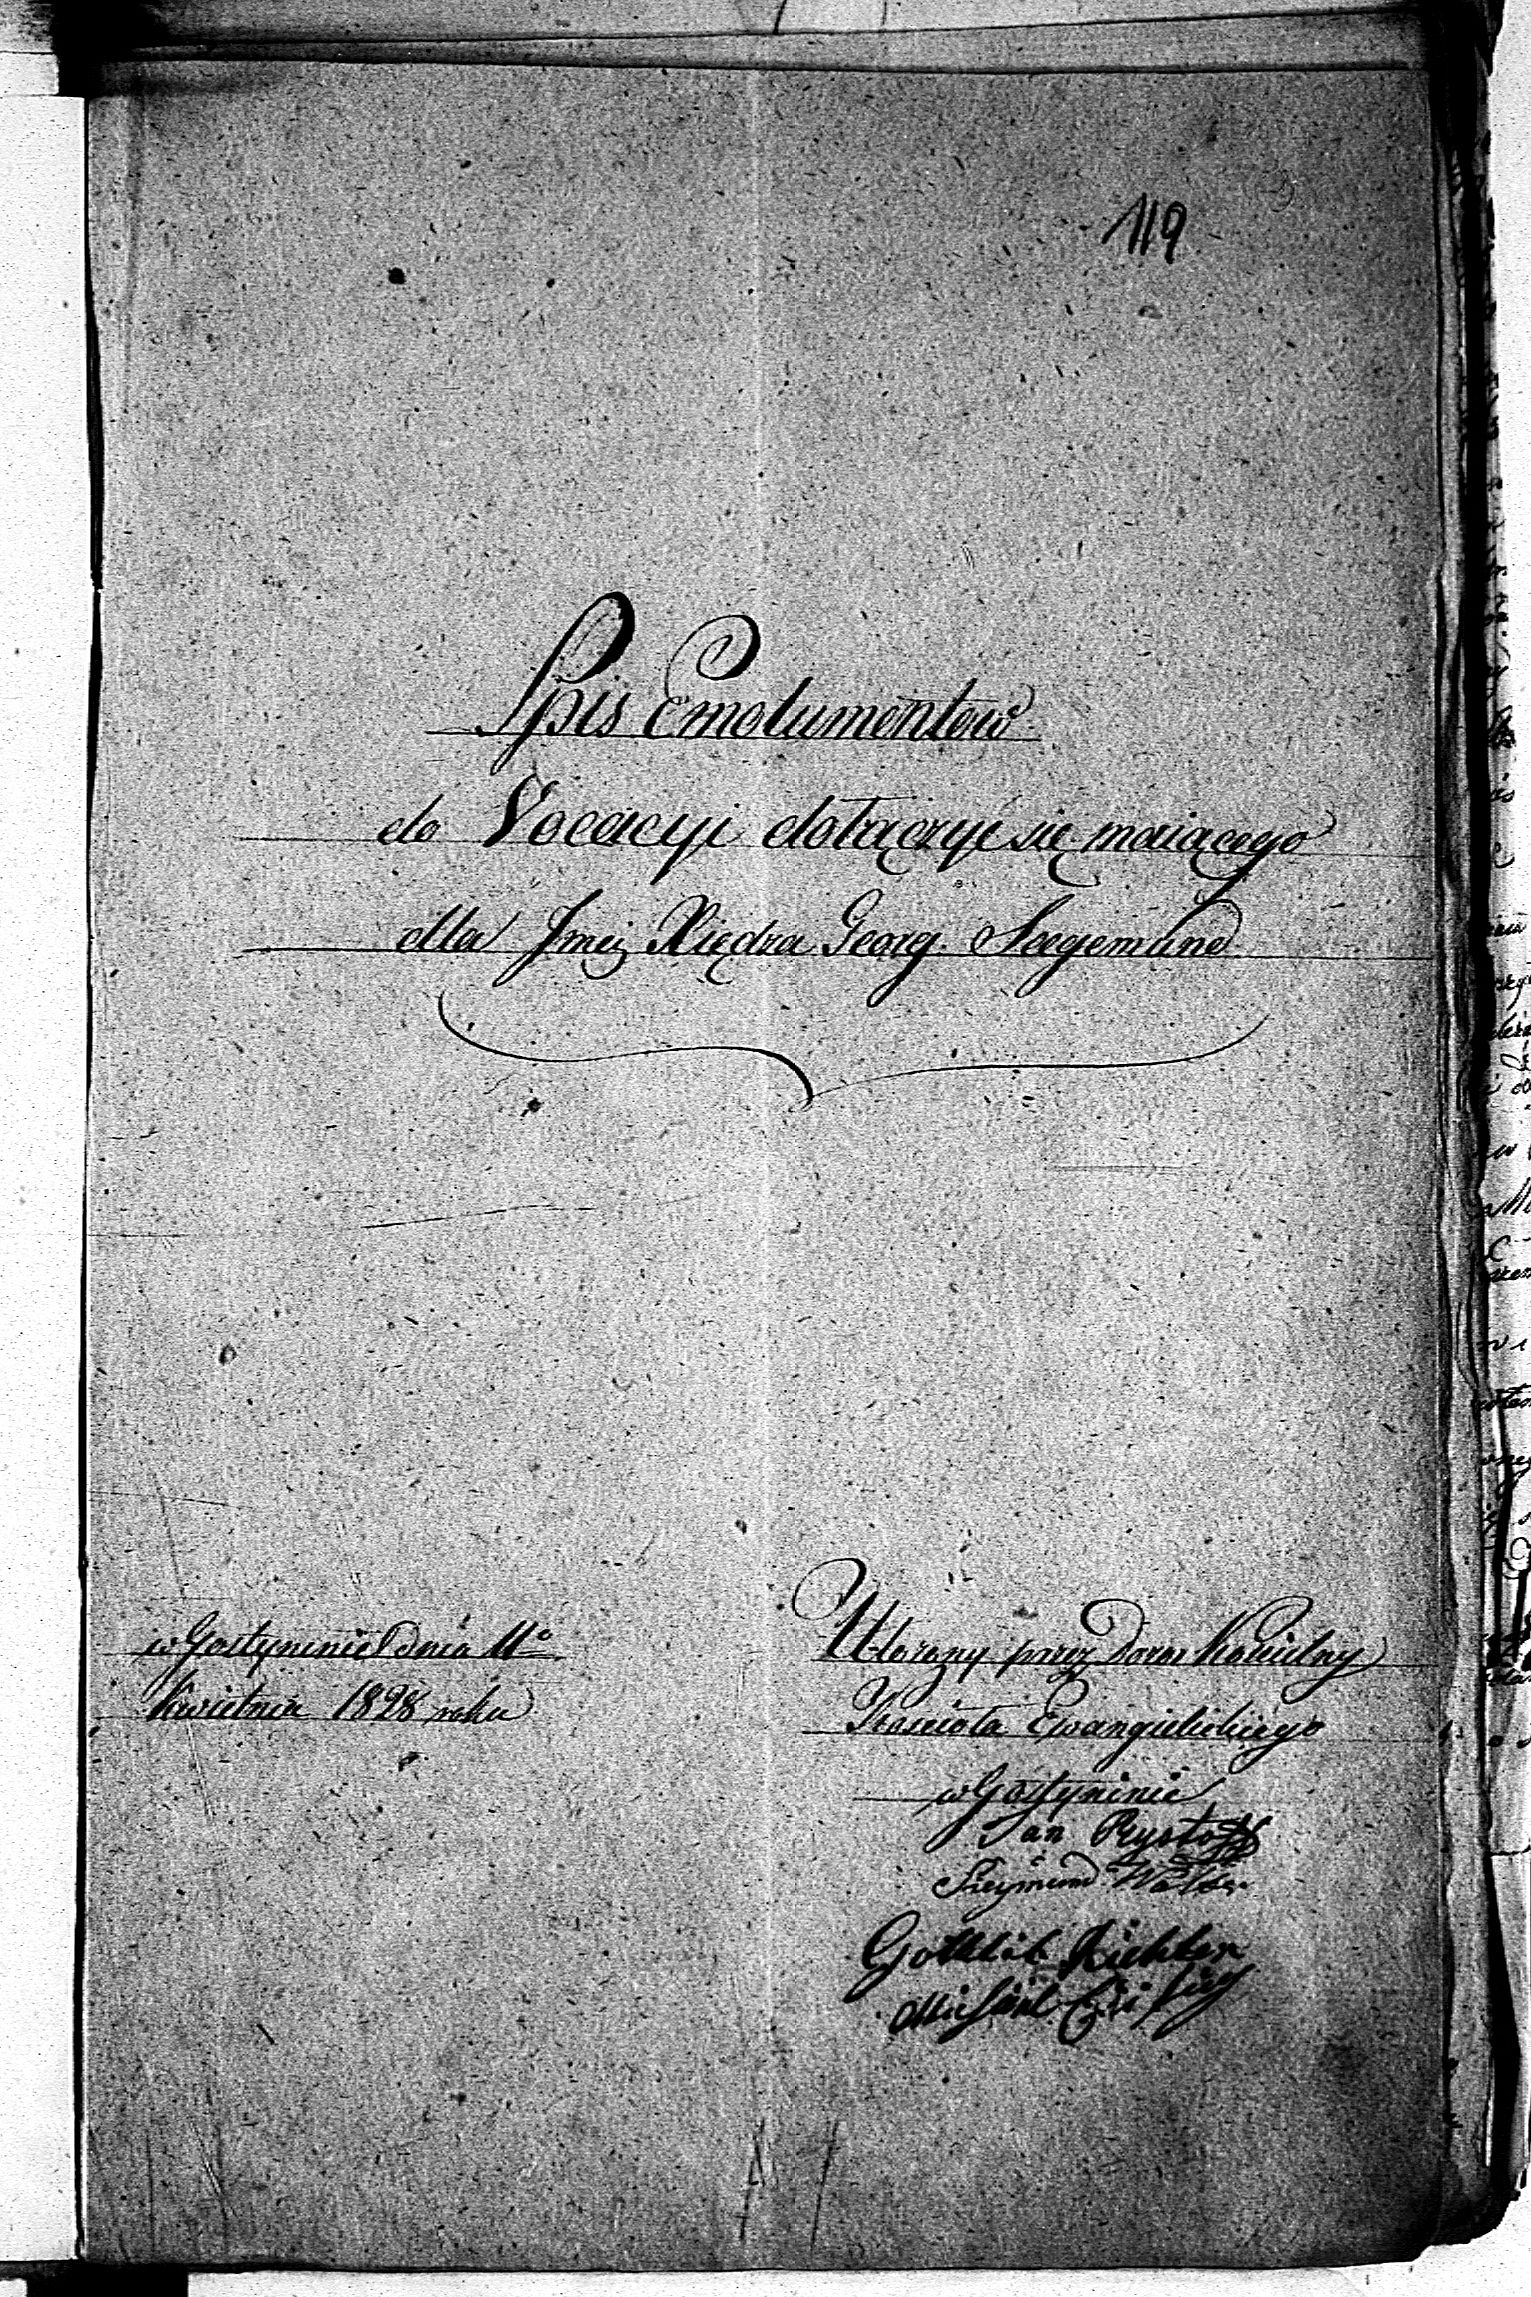 119
Spis Emolumentow
do Vocacyi dołączyć się maiącego
dla Jmci Xiędza Georg. Seegemund
w Gostyninie dnia 11º
Kwietnia 1828 roku
Ułożony przez Dozor Koscielny
Koscioła Ewangielickiego
w Gostyninie
Jan
Gottlieb Richter